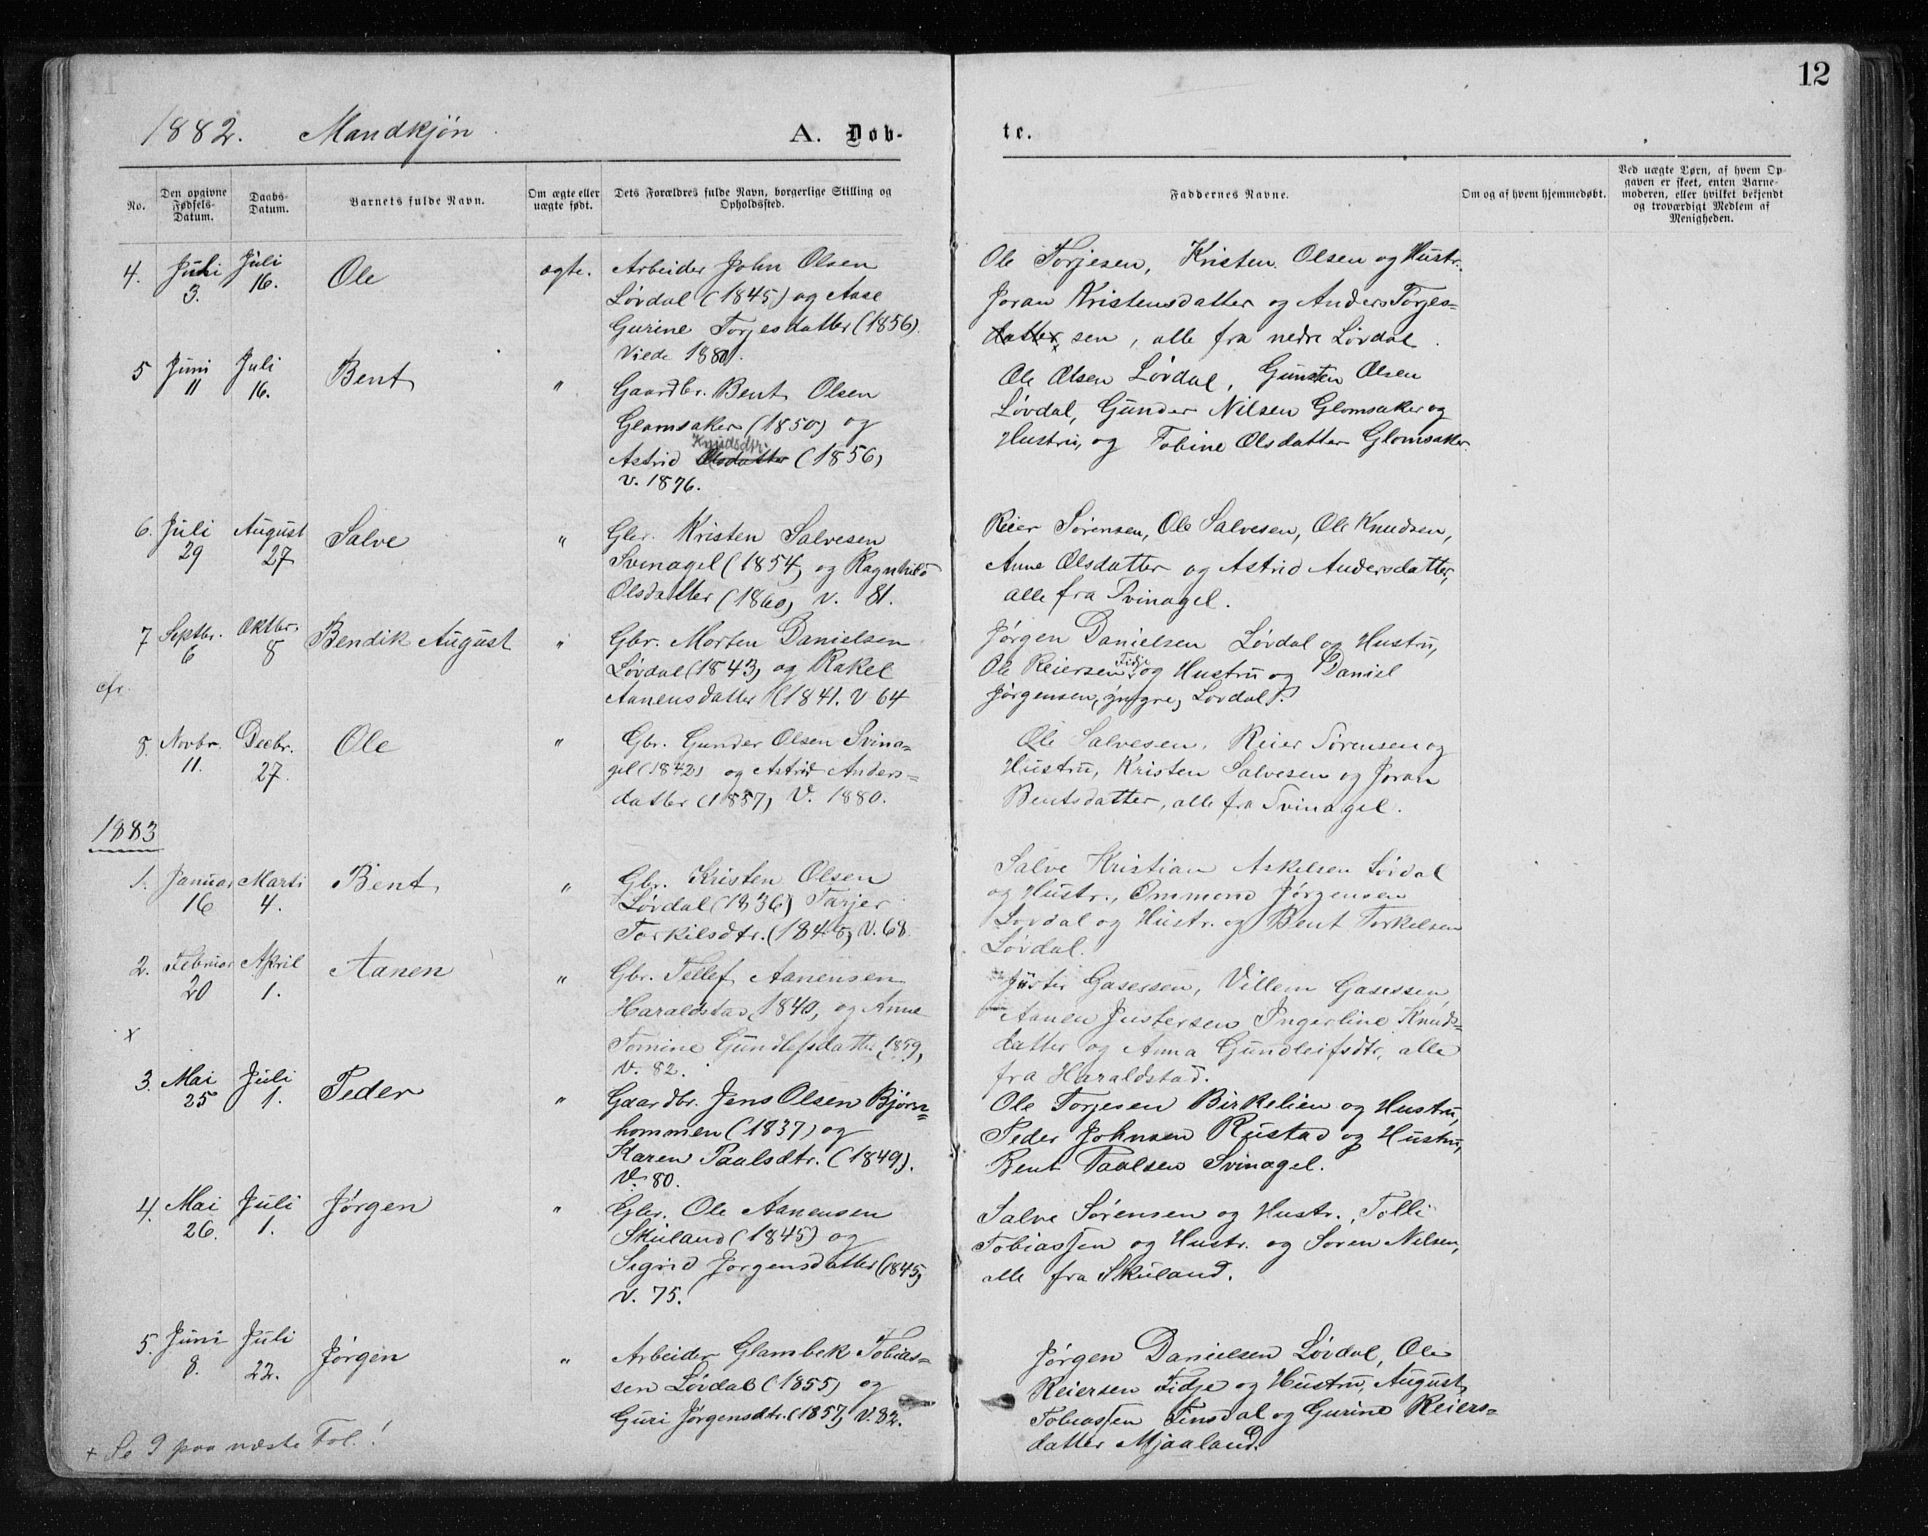 12
1882. Mandkjøn A. Døb- te.
No. Den opgivne Fødsels-Datum. Daabs-Datum. Barnets fulde Navn. Om ægte eller uægte født. Dets Forældres fulde Navn, borgerlige Stilling og Opholdssted. Faddernes Navne. Om og af hvem hjemmedøbt. Ved uægte Børn, af hvem Opgaven er skeet, enten Barnemoderen, eller hvilket bekjendt og troværdigt Medlem af Menigheden.
4. Juli 3. Juli 16. Ole ægte. Arbeider John Olsen
Løvdal (1845) og Aase
Gurine Torjesdatter (1856).
Viede 1880.
Ole Torjesen, Kristen Olsen og Hustr.
Joran Kristensdatter og Anders Torjes-
datter sen, alle fra nedre Løvdal.
5 Juni 11 Juli 16. Bent " Gaardbr. Bent Olsen
Glomsaker (1850) og
Knudsdtr.
Astrid Olsdatter (1856)
v. 1876.
Ole Olsen Løvdal, Gunsten Olsen
Løvdal, Gunder Nilsen Glomsaker og
Hustru, og Tobine Olsdatter Glomsaker
6. Juli 29 August 27 Salve " Gbr. Kristen Salvesen
Svinagel (1854) og Ragnhild
Olsdatter (1860) v. 81.
Reier Sørensen, Ole Salvesen, Ole Knudsen,
Anne Olsdatter og Astrid Andersdatter,
alle fra Svinagel.
7 Septbr. 6 Oktbr. 8 Bendik August " Gbr. Morten Danielsen
Løvdal (1843) og Rakel
Aanensdatter (1841. V 64
cfr.
Jørgen Danielsen Løvdal og Hustru,
Ole Reiersen Fidje og Hustru og Daniel
Jørgensen, yngre, Løvdal.
8. Novbr. 11. Decbr. 27. Ole " Gbr. Gunder Olsen Svina-
gel (1842) og Astrid Anders-
datter (1857) V. 1880.
Ole Salvesen, Reier Sørensen og
Hustru, Kristen Salvesen og Joran
Bentsdatter, alle fra Svinagel.
1883
1. Januar 16 Marts 4. Bent " Gbr. Kristen Olsen
Løvdal (1836) Tarjer
Torkilsdtr. (1845) V. 68.
Salve Kristian Askelsen Løvdal
og Hustr., Ommund Jørgensen
Løvdal og Hustr. og Bent Torkelsen
Løvdal.
2. Februar 20 April 1. Aanen " Gbr. Tellef Aanensen
Haraldstad 1840, og Anne
Tomine Gundlefsdatter 1859,
V. 82.
x
Juster Gasersen, Villem Gasessen,
Aanen Justersen Ingerline Knuds-
datter og Anna Gundleifsdtr, alle
fra Haraldstad.
3. Mai 25 Juli 1. Peder " Gaardbr. Jens Olsen Bjørn-
hommen (1837) og
Karen Paalsdtr. (1849).
V. 80.
Ole Torjesen Birkelien og Hustru,
Peder Johnsen Rustad og Hustru,
Bent Paalsen Svinagel.
4. Mai 26. Juli 1. Jørgen " Gbr. Ole Aanensen
Skuland (1845) og
Sigrid Jørgensdatter (1845)
V. 75.
Salve Sørensen og Hustr., Tolli
Tobiassen og Hustr. og Soren Nilsen,
alle fra Skuland.
5. Juni 8. Juli 22. Jørgen " Arbeider Glambek Tobias-
sen Løvdal (1855) og
Guri Jørgensdtr. (1857) V. 82.
Jørgen Danielsen Løvdal, Ole
Reiersen Fidje og Hustru, August
Tobiassen Finsdal og Gurine Reiers-
datter Mjaaland.
+ Se 9 paa næste Fol.!